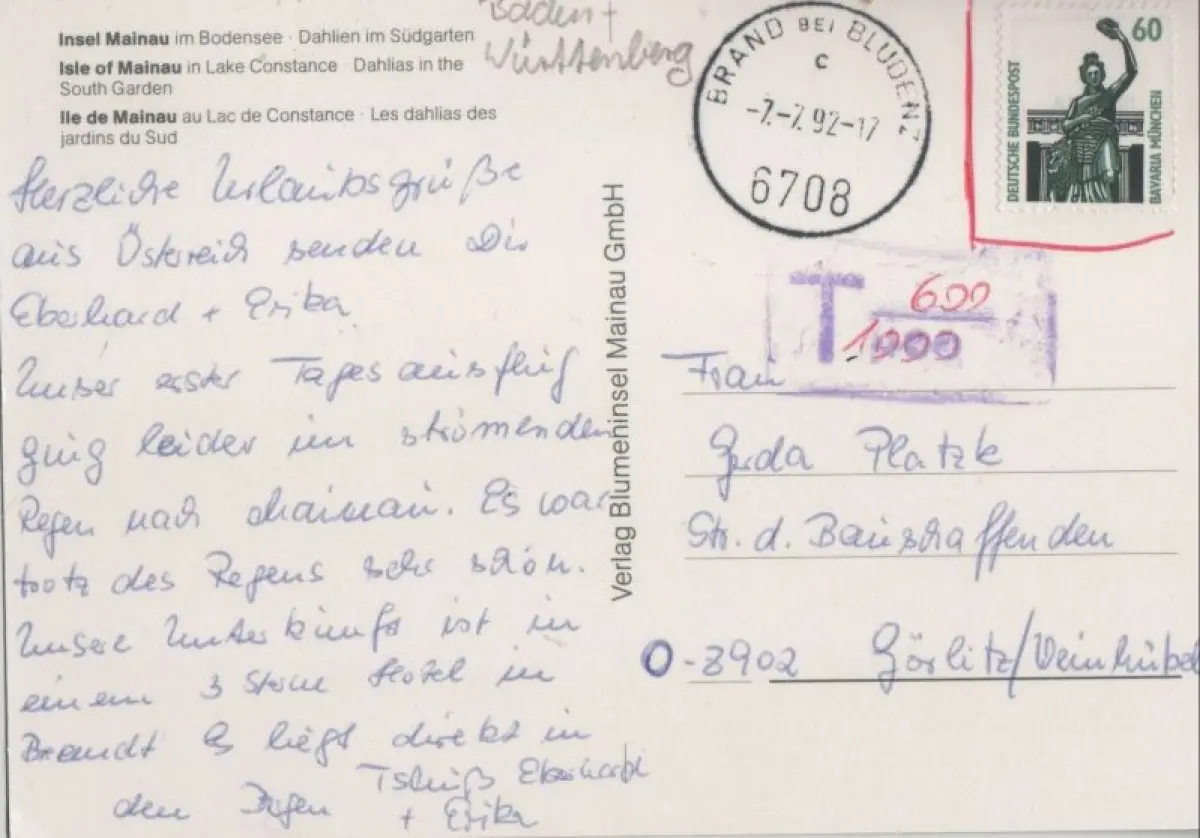 Baden +
Württenberg
Insel Mainau im Bodensee · Dahlien im Südgarten
Isle of Mainau in Lake Constance · Dahlias in the
South Garden
Ile de Mainau au Lac de Constance · Les dahlias des
jardins du Sud
Herzliche Urlaubsgrüße
aus Österreich senden Dir
Eberhard + Erika
Unser erster Tagesausflug
ging leider im strömenden
Regen nach Mainau. Es war
trotz des Regens sehr schön.
Unsere Unterkunft ist in
einem 3 Sterne Hotel in
Brandt Es liegt direkt in
den
Tschüß Eberhard
+ Erika
Verlag Blumeninsel Mainau GmbH
BRAND BEI BLUDENZ
c
-7.-7.92-17
6708
60
DEUTSCHE BUNDESPOST
BAVARIA MÜNCHEN
T 600
1000
Frau
Gerda Platzk
Str. d. Bauschaffenden
O-8902 Görlitz/Weinhübel